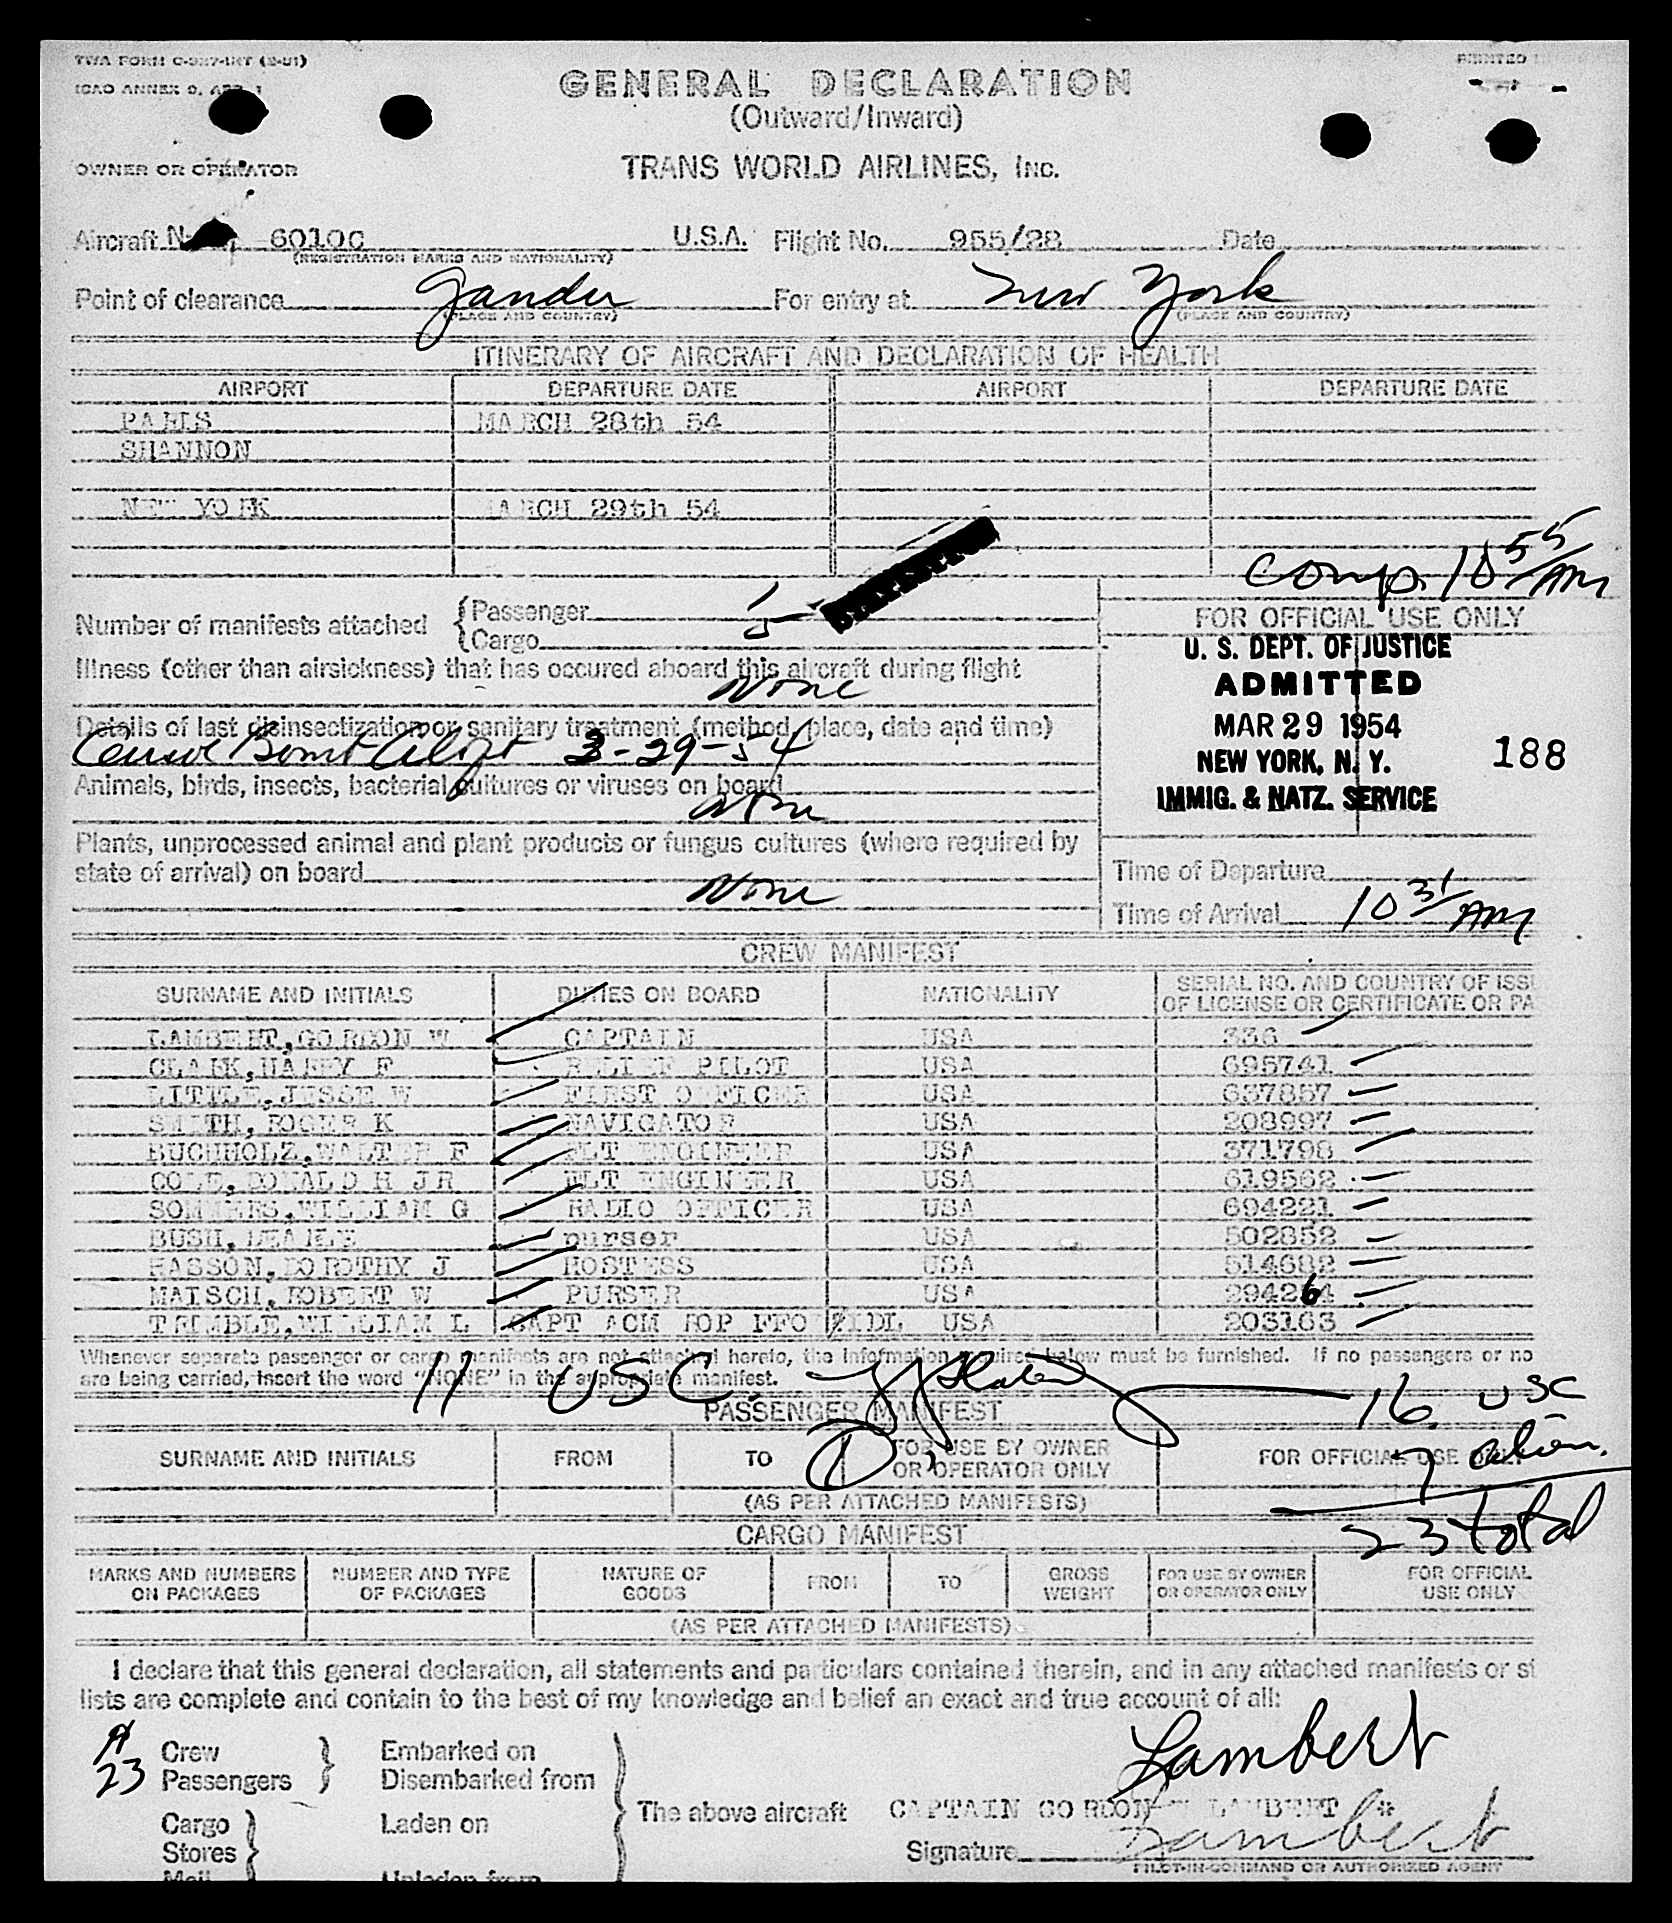 TWA FORM
ICAO ANNEX 9,
PRINTED
GENERAL DECLARATION
(Outward/Inward)
OWNER OR OPERATOR
TRANS WORLD AIRLINES, INC.
Aircraft N- 6010C U.S.A. Flight No. 955/28 Date
(REGISTRATION MARKS AND NATIONALITY)
Point of clearance Gander For entry at New York
(PLACE AND COUNTRY) (PLACE AND COUNTRY)
ITINERARY OF AIRCRAFT AND DECLARATION OF HEALTH
AIRPORT DEPARTURE DATE AIRPORT DEPARTURE DATE
PARIS MARCH 28th 54
SHANNON
NEW YORK MARCH 29th 54
Comp. 10 55/AM
Number of manifests attached { Passenger 1
Cargo 5
FOR OFFICIAL USE ONLY
U. S. DEPT. OF JUSTICE
ADMITTED
MAR 29 1954
NEW YORK, N. Y.
IMMIG. & NATZ. SERVICE
188
Illness (other than airsickness) that has occured aboard this aircraft during flight
None
Details of last disinsectization or sanitary treatment (method, place, date and time)
Bomb 3-29-54
Animals, birds, insects, bacterial cultures or viruses on board
None
Plants, unprocessed animal and plant products or fungus cultures (where required by
state of arrival) on board
None
Time of Departure
Time of Arrival 10 31/AM
CREW MANIFEST
SURNAME AND INITIALS DUTIES ON BOARD NATIONALITY SERIAL NO. AND COUNTRY OF ISS
OF LICENSE OR CERTIFICATE OR PA
LAMBERT,GORDON W CAPTAIN USA 336
CLARK,HARRY F RELIEF PILOT USA 695741
LITTLE,JESSE W FIRST OFFICER USA 637857
SMITH,ROGER K NAVIGATOR USA 208997
BUCHHOLZ,WALTER F FLT ENGINEER USA 371798
COLE,DONALD H JR FLT ENGINEER USA 619562
SOMMERS,WILLIAM G RADIO OFFICER USA 694221
BUSH, purser USA 502852
HASSON,DOROTHY J HOSTESS USA 514682
MATSCH,ROBERT W PURSER USA 294264
TRIMBLE,WILLIAM L CAPT ACM USA 203163
Whenever separate passenger or cargo manifests are not attached hereto, the information required below must be furnished. If no passengers or no
are being carried, insert the word "NONE" in the appropriate manifest.
11 USC.
PASSENGER MANIFEST
16 USC
SURNAME AND INITIALS FROM TO 1 FOR USE BY OWNER
OR OPERATOR ONLY FOR OFFICIAL USE ONLY
7 alien.
(AS PER ATTACHED MANIFESTS)
23 total
CARGO MANIFEST
MARKS AND NUMBERS
ON PACKAGES NUMBER AND TYPE
OF PACKAGES NATURE OF
GOODS FROM TO GROSS
WEIGHT FOR USE BY OWNER
OR OPERATOR ONLY FOR OFFICIAL
USE ONLY
(AS PER ATTACHED MANIFESTS)
I declare that this general declaration, all statements and particulars contained therein, and in any attached manifests or s
lists are complete and contain to the best of my knowledge and belief an exact and true account of all:
Lambert
11 Crew Embarked on
23 Passengers Disembarked from
The above aircraft CAPTAIN GORDON W LAMBERT *
Cargo Laden on
Stores
Signature Lambert
PILOT-IN-COMMAND OR AUTHORIZED AGENT
Mail Unladen from